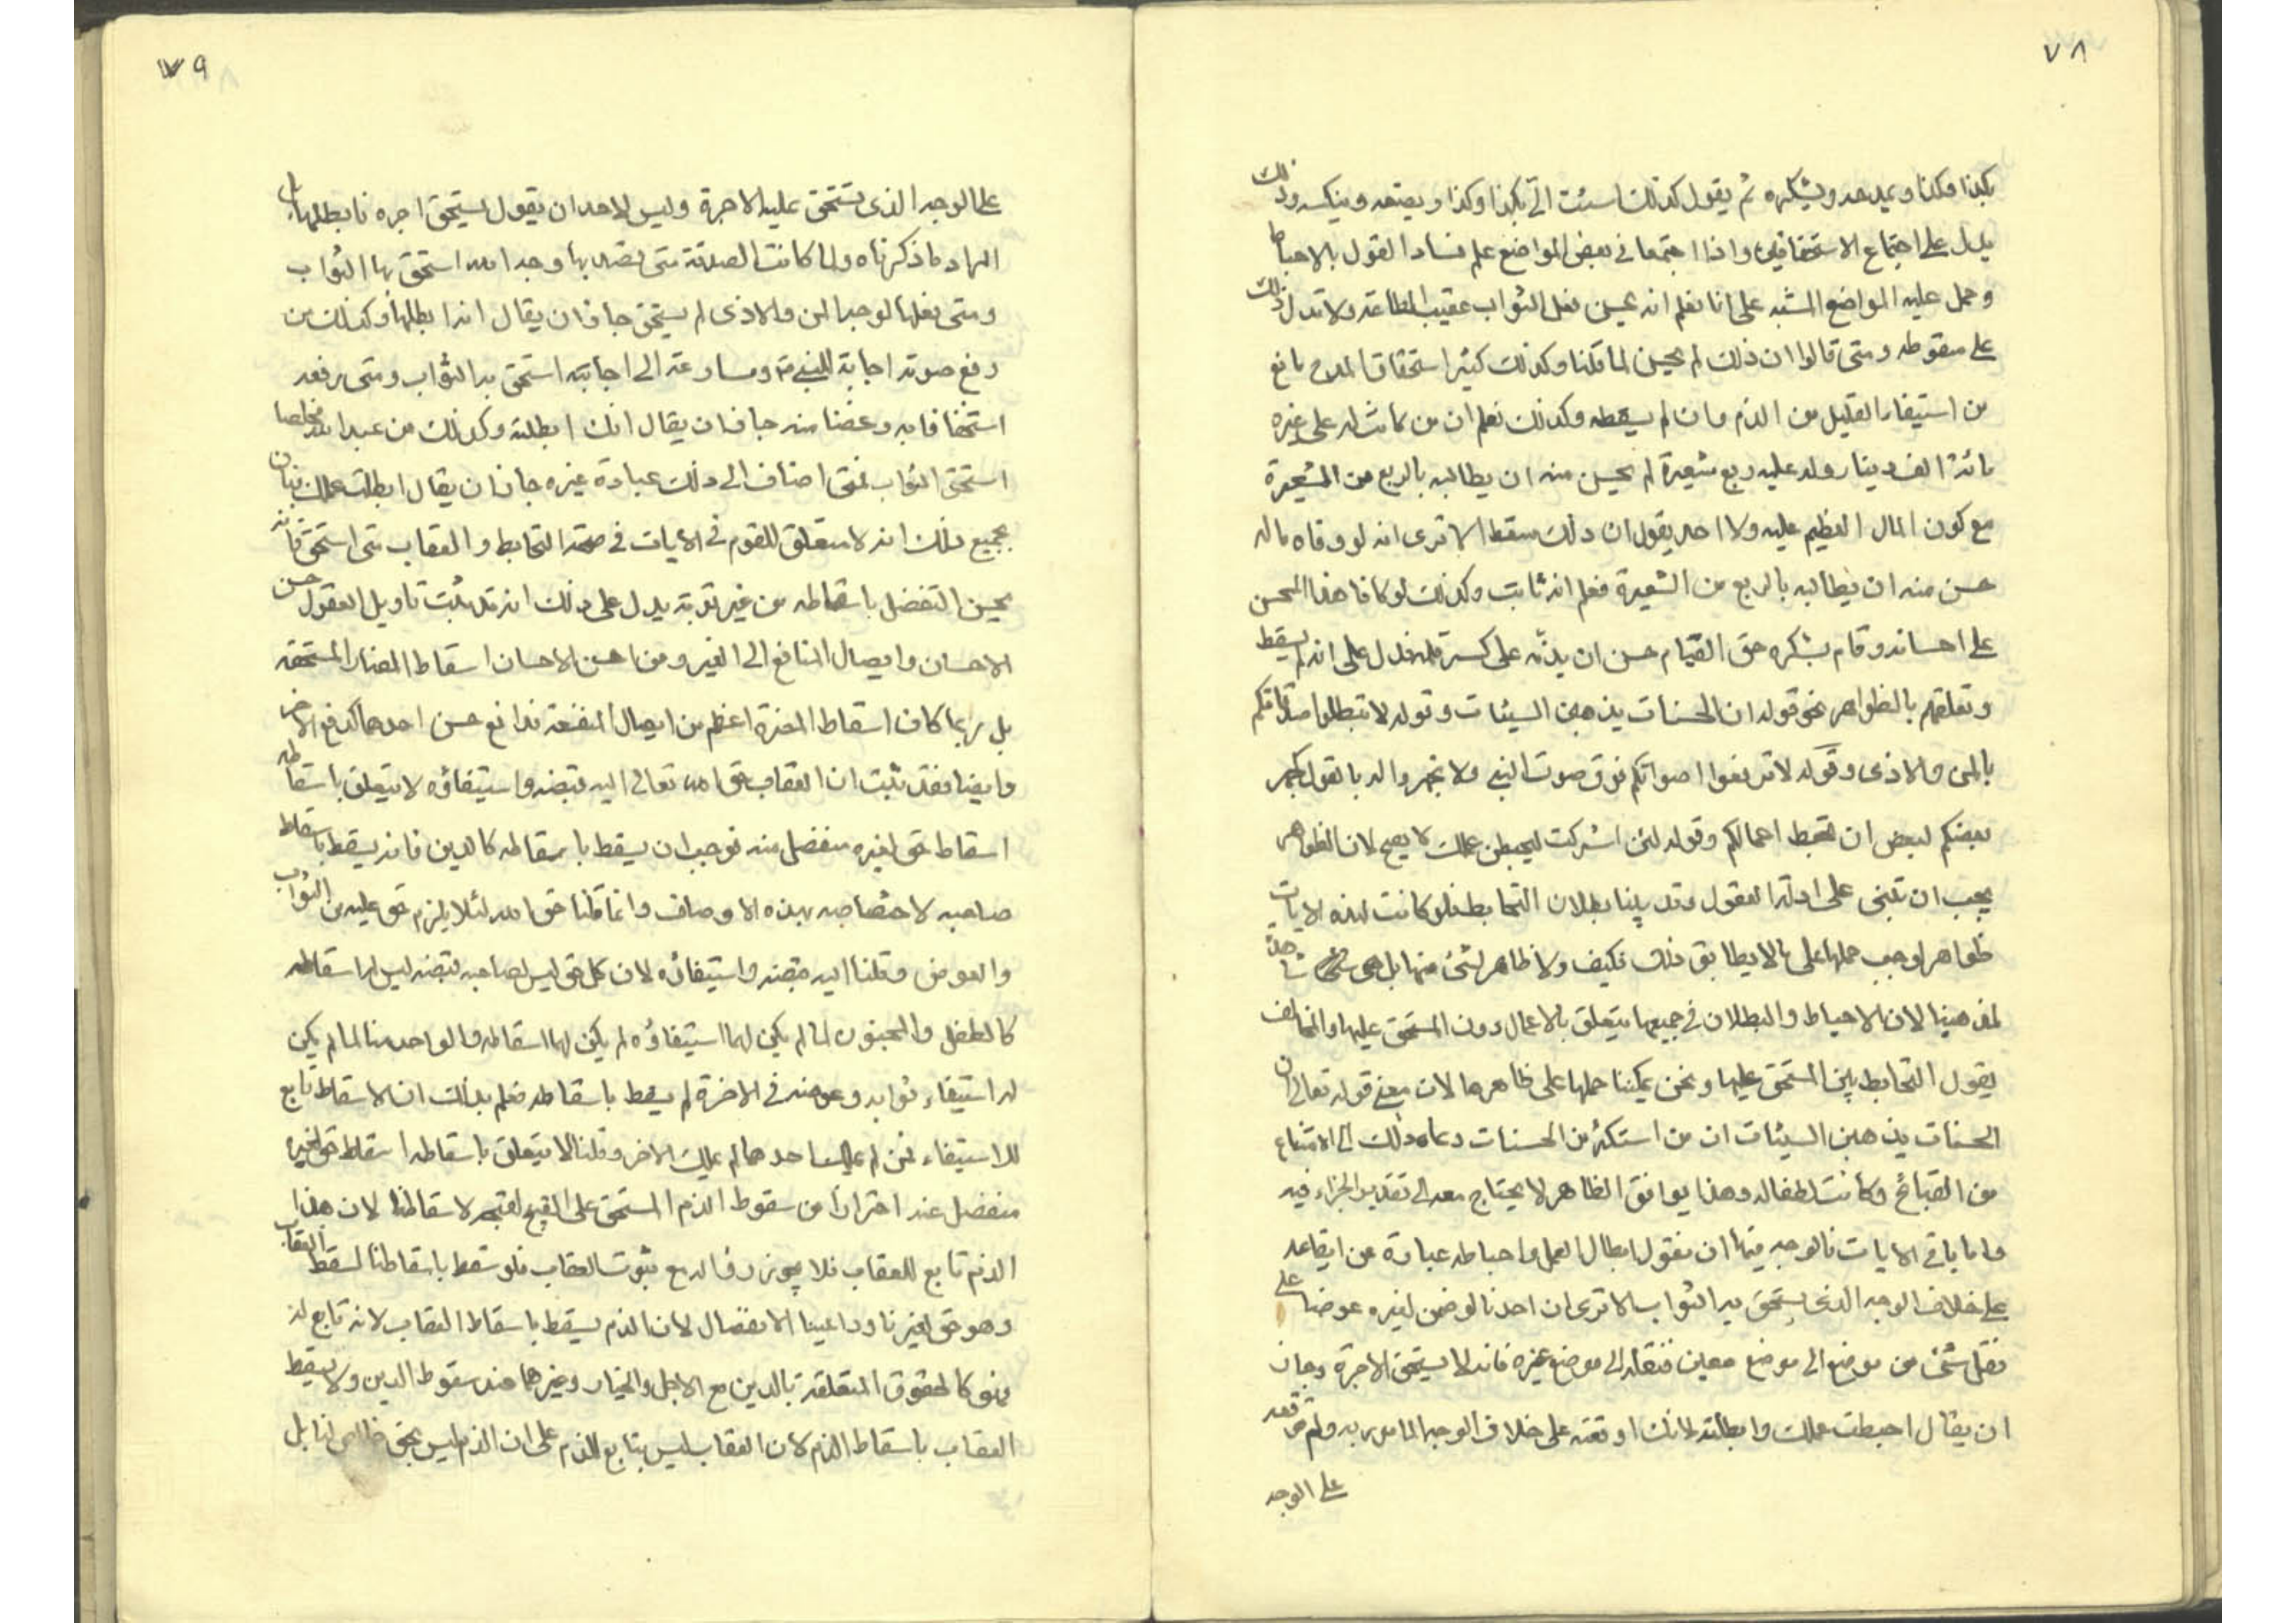 ٧٨
بكذا وكذا ويمدحه ويشكره ثم يقول كذلك اسئت الىّ بكذا وكذا ويصنعه وينكسه وذلك
يدل على اجتماع الاستحقاقين واذا اجتمعا في بعض المواضع علم فساد القول بالاحباط
وحمل عليه المواضع المشبه على انا نعلم انه يحسن فعل الثواب عقيب الطاعة ولا تدل ذلك
على سقوطه ومتى قالوا ان ذلك لم يحسن لما قلنا وكذلك كثير استحقاق المدح مانع
من استيفاء القليل من الذم وان لم يسقطه وكذلك نعلم ان من كانت له على غيره
مائة الف دينار وله عليه ربع شعيرة لم يحسن منه ان يطالبه بالربع من الشعيرة
مع كون المال العظيم عليه ولا احد يقول ان ذلك سقط الا ترى انه لو وفاه ماله
حسن منه ان يطالبه بالربع من الشعيرة فعلم انه ثابت وكذلك لو كافا هذا المحسن
على احسانه وقام بشكره حق القيام حسن ان يذمّه على كسر قلمه فدل على انه لم يسقط
وتعلقهم بالظواهر نحو قوله ان الحسنات يذهبن السيئات وقوله لا تبطلوا صدقاتكم
بالمن والاذى وقوله لا ترفعوا اصواتكم فوق صوت النبي ولا تجهروا له بالقول كجهر
بعضكم لبعض ان تحبط اعمالكم وقوله لئن اشركت ليحبطن عملك لا يصح لان الظواهر
يجب ان تبنى على ادلة العقول وقد بينا بطلان التحابط فلو كانت لهذه الايات
ظواهر لوجب حملها على ما لا يطابق ذلك فكيف ولا ظاهر لشئ منها بل هي شاهدة
لمذهبنا لان الاحباط والبطلان في جميعها يتعلق بالاعمال دون المستحق عليها والمخالف
يقول التحابط بين المستحق عليها ونحن يمكننا حملها على ظاهرها لان معنى قوله تعالى ان
الحسنات يذهبن السيئات ان من استكثر من الحسنات دعاه ذلك الى الامتناع
من القبائح وكانت لطفا له وهذا يوافق الظاهر لا يحتاج معه الى تقدير الجزاء فيه
واما باقي الايات فالوجه فيها ان نقول ابطال العمل واحباطه عبارة عن ايقاعه
على خلاف الوجه الذي يستحق به الثواب الا ترى ان احدنا لو ضمن لغيره عوضا على
نقل شئ من موضع الى موضع معين فنقله الى موضع غيره فانه لا يستحق الاجرة وجاز
ان يقال احبطت عملك وابطلته لانك اوقعته على خلاف الوجه المامور به ولم توقعه
على الوجه
٧٩
على الوجه الذي يستحق عليه الاجرة وليس لاحد ان يقول يستحق اجره فابطلها بل
المراد ما ذكرناه ولما كانت الصدقة متى يقصد بها وجه الله استحق بها الثواب
ومتى فعلها لوجه المن والاذى لم يستحق جاز ان يقال انه ابطلها وكذلك من
رفع صوته اجابة للنبي ومسارعة الى اجابته استحق به الثواب ومتى يرفعه
استخفافا به وغضا منه جاز ان يقال انك ابطلته وكذلك من عبد الله مخلصا
استحق الثواب فمتى اضاف الى ذلك عبادة غيره جاز ان يقال ابطلت عملك فبان
بجميع ذلك انه لا متعلق للقوم في الايات في صحة التحابط والعقاب متى استحق فانه
يحسن التفضل باسقاطه من غير توبة يدل على ذلك انه قد ثبت تاويل العقول حسن
الاحسان وايصال المنافع الى الغير ومن احسن الاحسان اسقاط المضار المستحقه
بل ربما كان اسقاط المضرة اعظم من ايصال المنفعة فدافع حسن احدهما كدفع الاخر
وايضا فقد ثبت ان العقاب حق الله تعالى اليه قبضه واستيفاؤه لا يتعلق باسقاطه
اسقاط حق لغيره منفصل منه فوجب ان يسقط باسقاطه كالدين فانه يسقط باسقاط
صاحبه لاختصاصه بهذه الاوصاف وانما قلنا حق الله لئلا يلزم حق عليه من الثواب
والعوض وقلنا اليه قبضه واستيفاؤه لان كل حق ليس لصاحبه قبضه ليس له اسقاطه
كالطفل والمجنون لما لم يكن لهما استيفاؤه لم يكن لهما اسقاطه والواحد منا لما لم يكن
له استيفاء ثوابه وعوضه في الاخرة لم يسقط باسقاطه فعلم بذلك ان الاسقاط تابع
للاستيفاء فمن لم يملك احدهما لم يملك الاخر وقلنا لا يتعلق باسقاطه اسقاط حق لغيره
منفصل عنه احترازا من سقوط الذم المستحق على القبيح لقبحه لاسقاطنا لان هذا
الذم تابع للعقاب فلا يجوز زواله مع ثبوت العقاب فلو سقط باسقاطنا لسقط العقاب
وهو حق لغيرنا وراعينا الانفصال لان الذم يسقط باسقاط العقاب لانه تابع له
فهو كالحقوق المتعلقة بالدين مع الاجل والخيار وغيرهما عند سقوط الدين ولا يسقط
العقاب باسقاط الذم لان العقاب ليس بتابع للذم على ان الذم ليس بحق خالص لنا بل